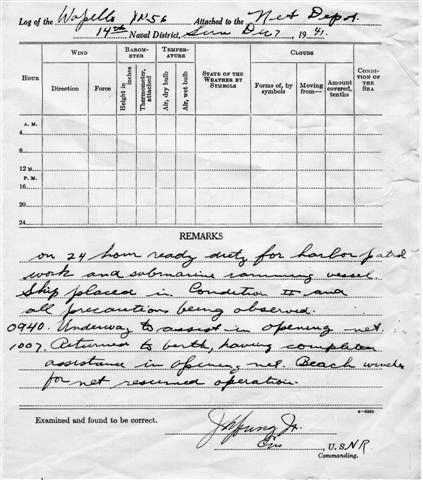 Log of the Wapello YN56 Attached to the Net Depot
14th Naval District, Sun Dec 7, 1941.
HOUR
WIND
Direction
Force
BAROMETER
Height in inches
Thermometer, attached
TEMPERATURE
Air, dry bulb
Air, wet bulb
STATE OF THE WEATHER BY SYMBOLS
CLOUDS
Forms of, by symbols
Moving from—
Amount covered, tenths
CONDITION OF THE SEA
A. M.
4
8
12 M.
P. M.
16
20
24
REMARKS
on 24 hour ready duty for harbor patrol
work and submarine ramming vessel.
Ship placed in Condition II and
all precautions being observed.
0940. Underway to assist in opening net.
1007. Returned to berth, having completed
assistance in opening net. Beach winches
for net resumed operation.
Examined and found to be correct.
Jr.
U. S. N R.
Commanding.